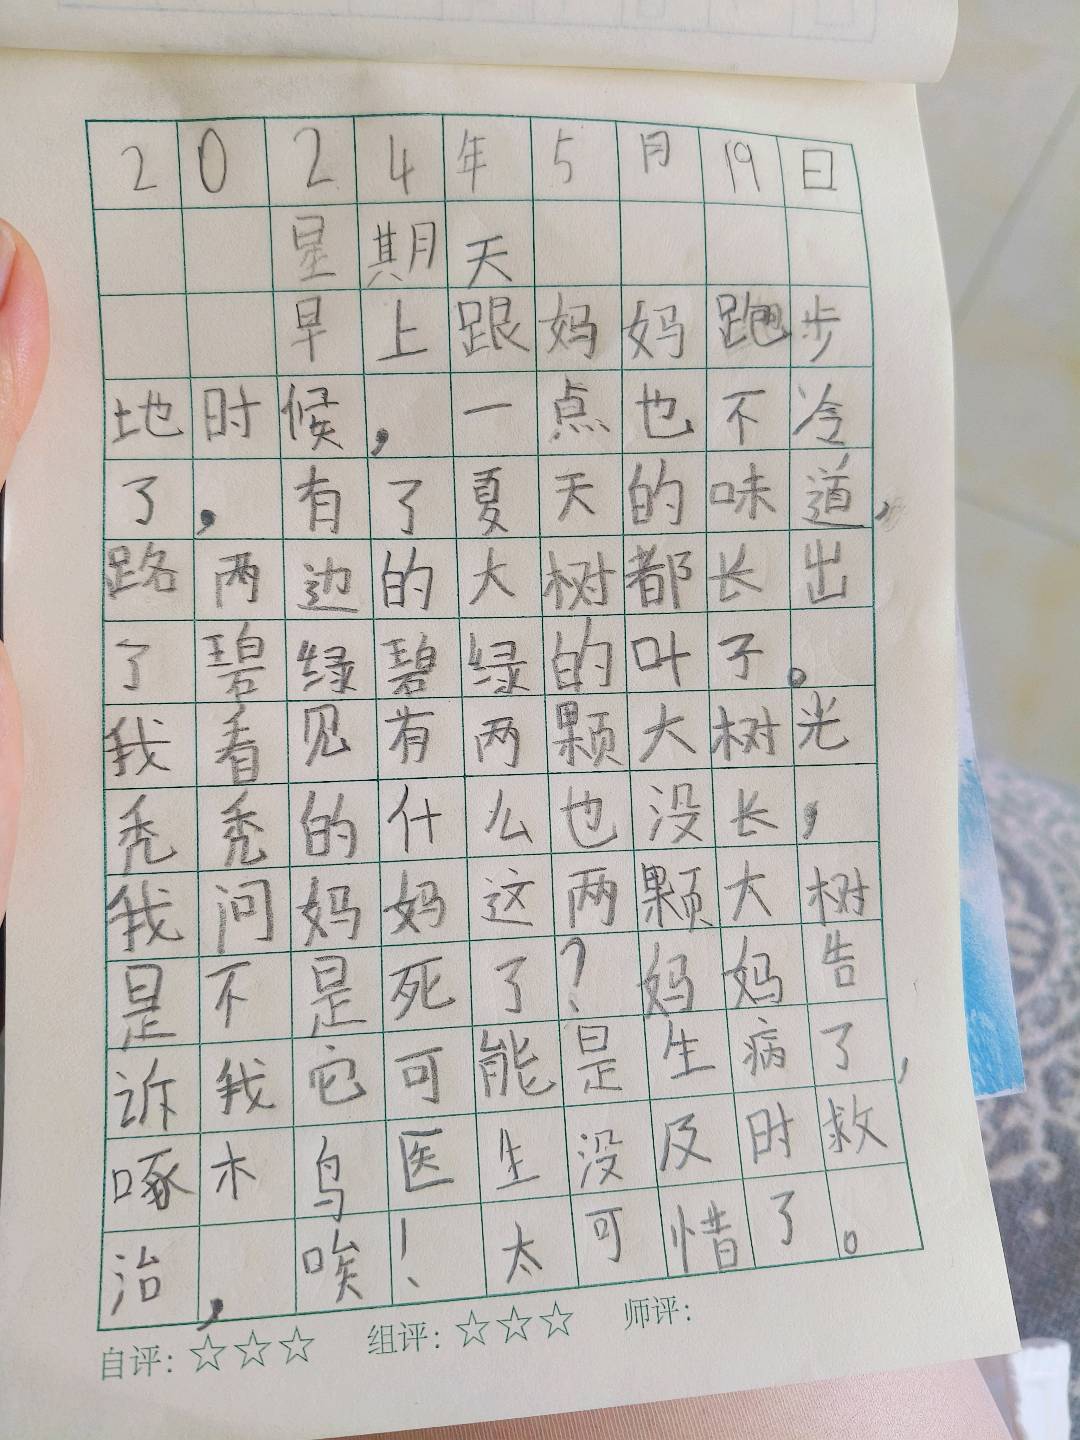 2024年5月19日
星期天
早上跟妈妈跑步
地时候，一点也不冷
了，有了夏天的味道，
路两边的大树都长出
了碧绿碧绿的叶子。
我看见有两颗大树光
秃秃的什么也没长，
我问妈妈这两颗大树
是不是死了？妈妈告
诉我它可能是生病了，
啄木鸟医生没及时救
治，唉！太可惜了。
自评：☆☆☆ 组评：☆☆☆ 师评：